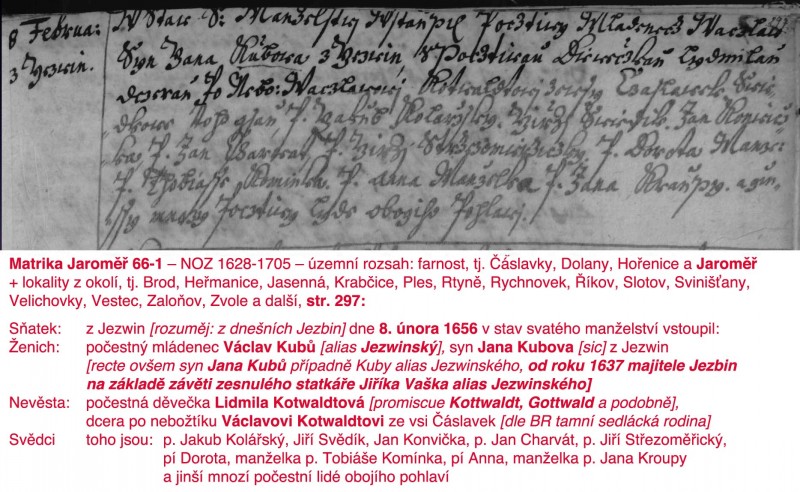 8 Februa:
z Jezwin.
W Staw S: Manželsky Wstaupil Pocztiwy Mladenecz Waczlaw
Syn Jana Kubowa z Jezwin s Pocztiwau Diewečkau Lydmilau
dczerau Po Nebo: Waczlawowi Kotwaldtowi zewsy Czaslawek Swie
dkowe toho gsau P. Jakub Kolarzsky. Jirzi Swiedik. Jan Konwicz
ka P. Jan Charwat P. Jirzi Strzezomierziczky. P. Dorota Manz:
P. Thobiasse Kominka. P. Anna Manzelka P. Jana Kraupy. a gin
ssy mnozy Pocztiwy Lyde obogiho Pohlawi.
Matrika Jaroměř 66-1 – NOZ 1628-1705 – územní rozsah: farnost, tj. Čáslavky, Dolany, Hořenice a Jaroměř
+ lokality z okolí, tj. Brod, Heřmanice, Jasenná, Krabčice, Ples, Rtyně, Rychnovek, Říkov, Slotov, Svinišťany,
Velichovky, Vestec, Zaloňov, Zvole a další, str. 297:
Sňatek: z Jezwin [rozuměj: z dnešních Jezbin] dne 8. února 1656 v stav svatého manželství vstoupil:
Ženich: počestný mládenec Václav Kubů [alias Jezwinský], syn Jana Kubova [sic] z Jezwin
[recte ovšem syn Jana Kubů případně Kuby alias Jezwinského, od roku 1637 majitele Jezbin
na základě závěti zesnulého statkáře Jiříka Vaška alias Jezwinského]
Nevěsta: počestná děvečka Lidmila Kotwaldtová [promiscue Kottwaldt, Gottwald a podobně],
dcera po nebožtíku Václavovi Kotwaldtovi ze vsi Čáslavek [dle BR tamní sedlácká rodina]
Svědci toho jsou: p. Jakub Kolářský, Jiří Svědík, Jan Konvička, p. Jan Charvát, p. Jiří Střezoměřický,
pí Dorota, manželka p. Tobiáše Komínka, pí Anna, manželka p. Jana Kroupy
a jinší mnozí počestní lidé obojího pohlaví